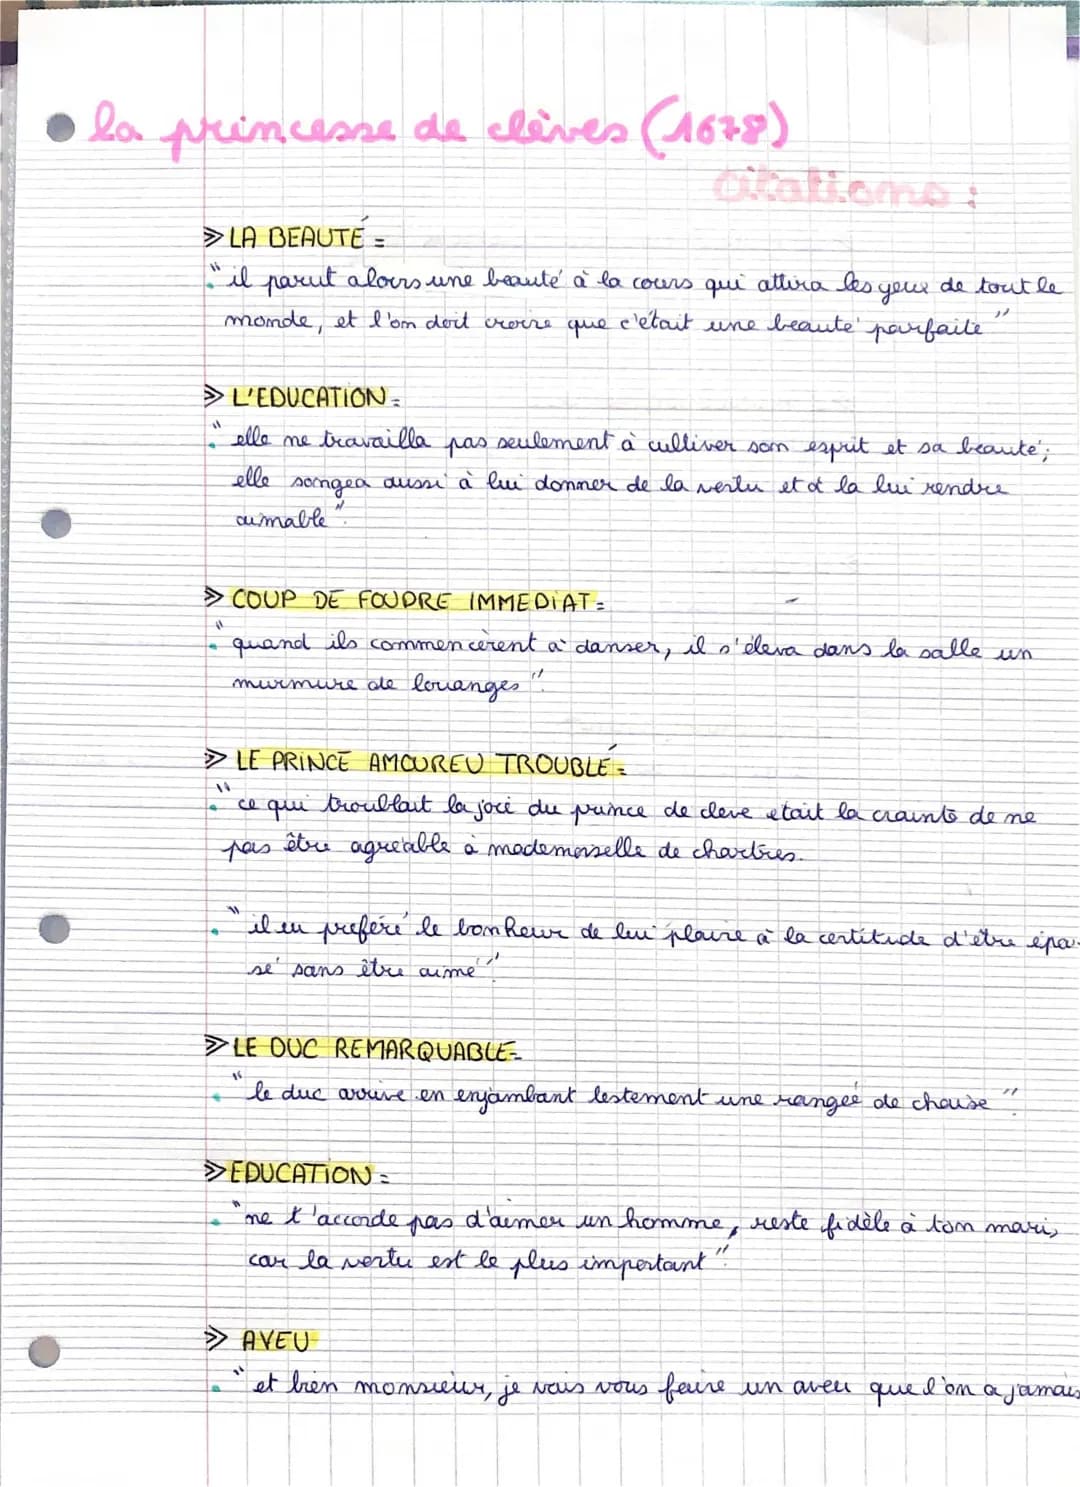 la princesse de clèves (1678)
citations :
>> LA BEAUTÉ =
"il parut alors une beauté à la cours qui attira les yeux de tout le
monde, et l'on doit croire que c'était une beauté parfaite"
>> L'EDUCATION =
"elle ne travailla pas seulement à cultiver son esprit et sa beauté;
elle songea aussi à lui donner de la vertu et à la lui rendre
aimable".
>> COUP DE FOUDRE IMMEDIAT =
"quand ils commencèrent à danser, il s'éleva dans la salle un
murmure de louanges".
>> LE PRINCE AMOUREU TROUBLÉ =
"ce qui troublait la joie du prince de cleve etait la crainte de ne
pas être agréable à mademoiselle de chartres.
"il eu préféré le bonheur de lui plaire à la certitude d'être épou-
sé sans être aimé".
>> LE DUC REMARQUABLE =
"le duc arrive en enjambant lestement une rangée de chaise".
>> EDUCATION =
"ne t'accorde pas d'aimer un homme, reste fidèle à ton mari,
car la vertu est le plus important".
>> AVEU
"et bien monsieur, je vais vous faire un aveu que l'on a jamais